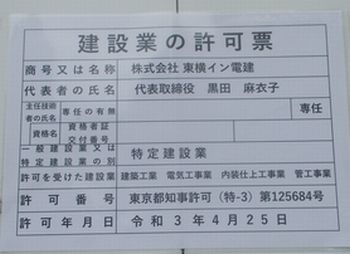 建設業の許可票
商号又は名称 株式会社 東横イン電建
代表者の氏名 代表取締役 黒田 麻衣子
主任技術者の氏名 専任の有無 専任
資格名 資格者証交付番号
一般建設業又は特定建設業の別 特定建設業
許可を受けた建設業 建築工業 電気工事業 内装仕上工事業 管工事業
許可番号 東京都知事許可（特-3）第125684号
許可年月日 令和3年4月25日